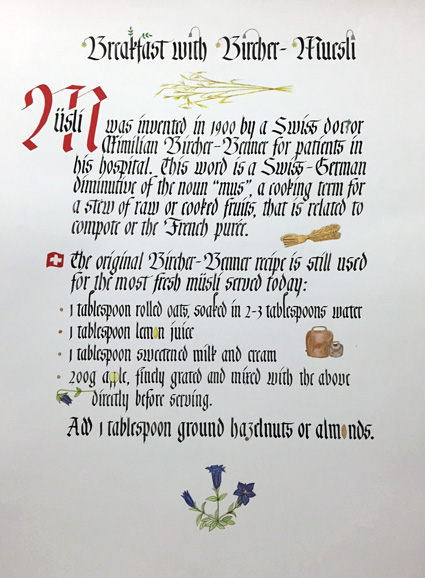 Breakfast with Bircher-Muesli
Müsli was invented in 1900 by a Swiss doctor
Maximilian Bircher-Benner for patients in
his hospital. This word is a Swiss-German
diminutive of the noun "mus", a cooking term for
a stew of raw or cooked fruits, that is related to
compote or the French purée.
The original Bircher-Benner recipe is still used
for the most fresh müsli served today:
1 tablespoon rolled oats, soaked in 2-3 tablespoons water
1 tablespoon lemon juice
1 tablespoon sweetened milk and cream
200g apple, finely grated and mixed with the above
directly before serving.
Add 1 tablespoon ground hazelnuts or almonds.